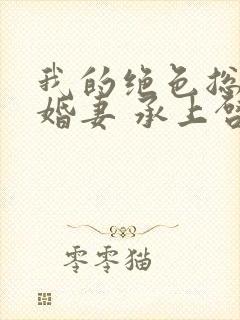 我的绝色总
婚妻 承上启
零零猫